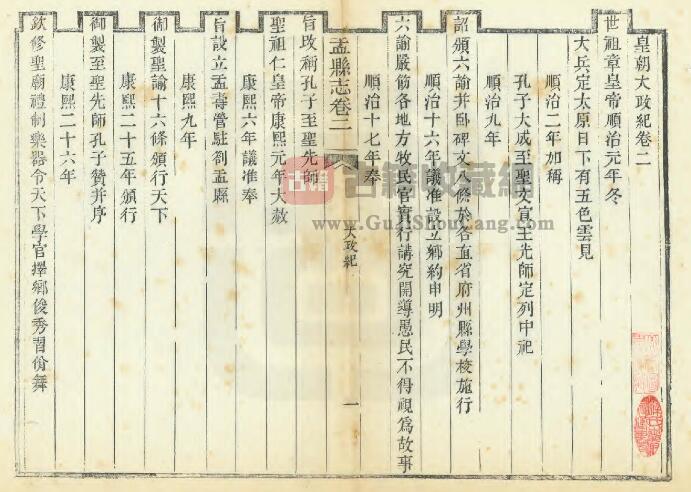 皇朝大政紀卷二
世祖章皇帝順治元年冬
大兵定太原日下有五色雲見
順治二年加稱
孔子大成至聖文宣王先師定列中祀
順治九年
詔頒六諭并卧碑文八條於各直省府州縣學校施行
順治十六年議准設立鄉約申明
六諭嚴飭各地方牧民官實行講究開導愚民不得視爲故事
順治十七年奉
盂縣志卷二
大政紀
一
旨改稱孔子至聖先師
聖祖仁皇帝康熙元年大赦
康熙六年議准奉
旨設立盂壽營駐劄盂縣
康熙九年
御製聖諭十六條頒行天下
康熙二十五年頒行
御製至聖先師孔子贊并序
康熙二十六年
欽修聖廟禮制樂器令天下學官擇鄉俊秀習佾舞
古籍
古籍收藏網
www.GuJiShouCang.com